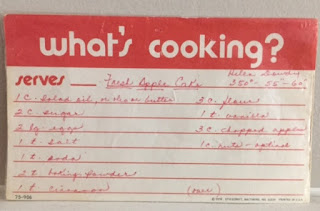 what's cooking?
Helen
serves Fresh Apple Cake 350° - 55" - 60"
1 c. salad oil, or oleo or butter 3 c. flour
2 c. sugar 1 t. vanilla
2 lg. eggs 3 c. chopped apples
1 t. salt 1 c. nuts - optional
1 t. soda
2 t. baking powder
1 t. cinnamon (over)
75-906 PRINTED IN U.S.A.